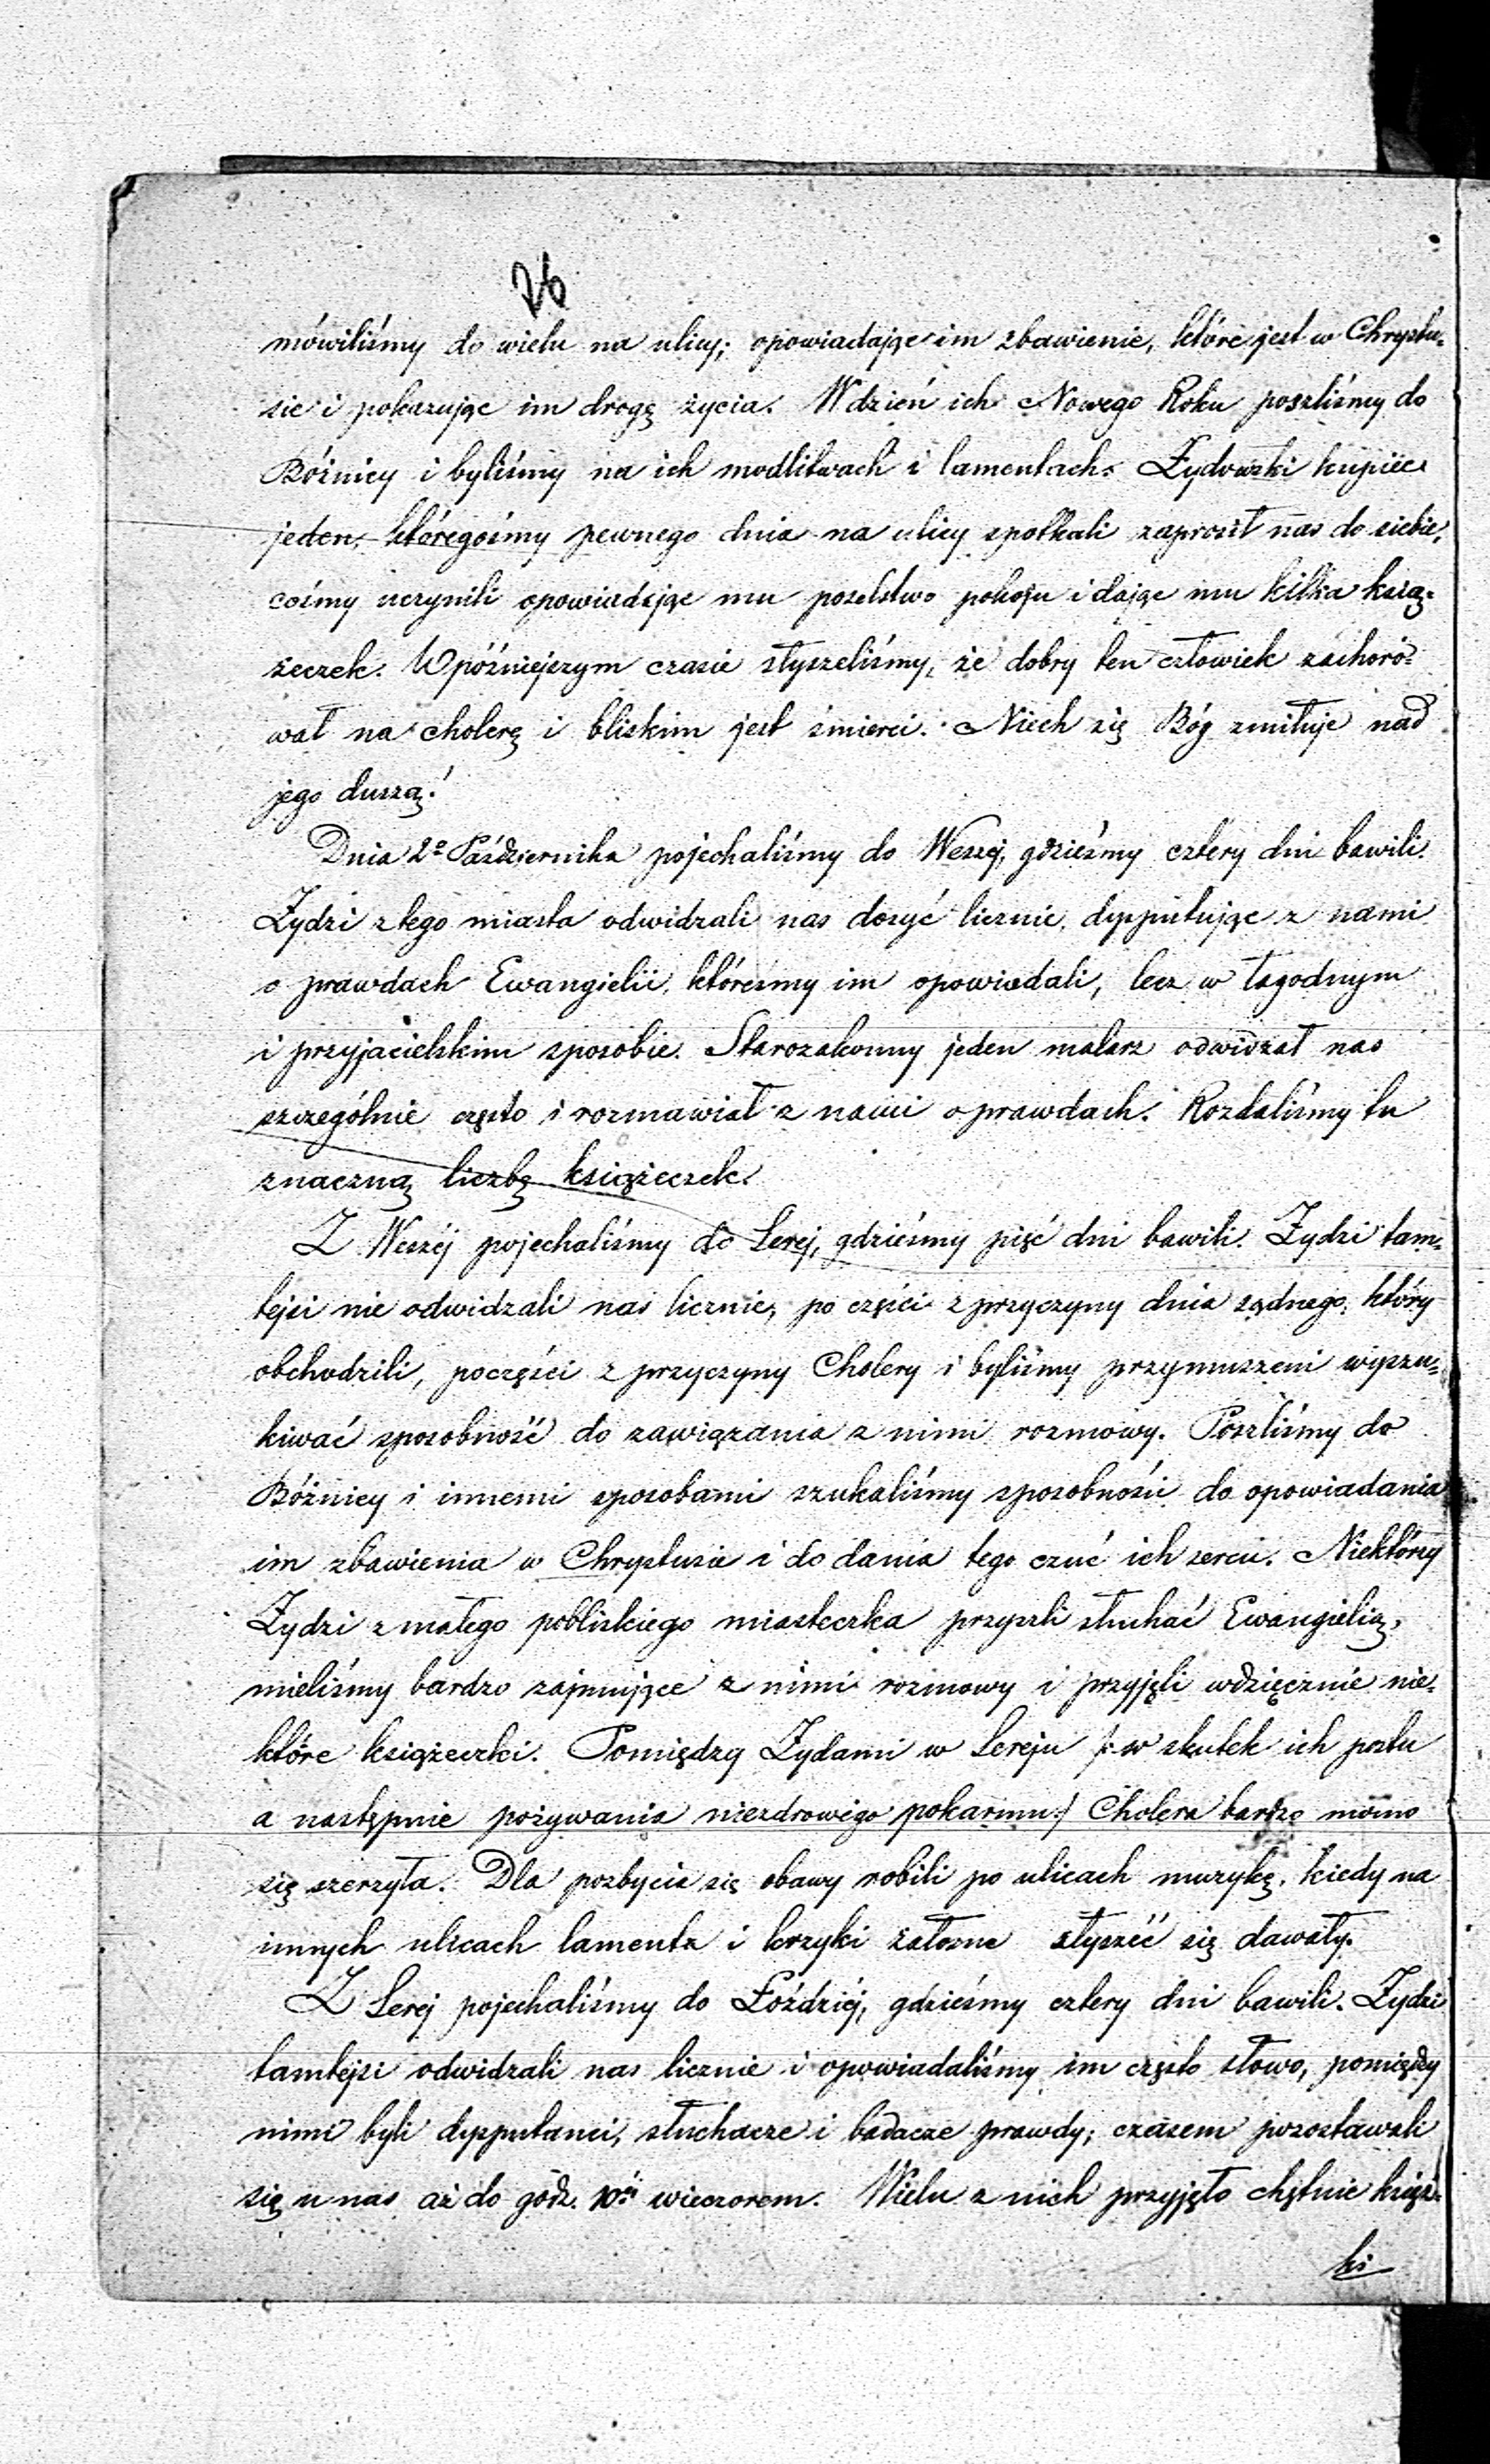 26
mówiliśmy do wielu na ulicy; opowiadając im zbawienie, które jest w Chrystu-
sie i pokazując im drogę życia. W dzień ich Nowego Roku poszliśmy do
Bóżnicy i byliśmy na ich modlitwach i lamentach. Żydowski kupiec
jeden, któregośmy pewnego dnia na ulicy spotkali zaprosił nas do siebie,
cośmy uczynili opowiadając mu poselstwo pokoju i dając mu kilka ksią-
żeczek. W późniejszym czasie słyszeliśmy, że dobry ten człowiek zachoro-
wał na cholerę i bliskim jest śmierci. Niech się Bóg zmiłuje nad
jego duszą!
Dnia 2º Października pojechaliśmy do Weszej, gdzieśmy cztery dni bawili.
Żydzi z tego miasta odwidzali nas dosyć licznie, dysputując z nami
o prawdach Ewangielii, któreśmy im opowiadali, lecz w łagodnym
i przyjacielskim sposobie. Starozakonny jeden malarz odwidzał nas
szczególnie często i rozmawiał z nami o prawdach. Rozdaliśmy tu
znaczną liczbę książeczek.
Z Weszéj pojechaliśmy do Serej, gdzieśmy pięć dni bawili. Żydzi tam-
tejsi nie odwidzali nas licznie, po części z przyczyny dnia sądnego, który
obchodzili, poczęści z przyczyny Cholery i byliśmy przymuszeni wyszu-
kiwać sposobność do zawiązania z nimi rozmowy. Poszliśmy do
Bóżnicy i innemi sposobami szukaliśmy sposobności do opowiadania
im zbawienia w Chrystusie i do dania tego czuć ich sercu. Niektórzy
Żydzi z małego pobliskiego miasteczka przyszli słuchać Ewangielią,
mieliśmy bardzo zajmujące z nimi rozmowy i przyjęli wdzięcznie nie-
które książeczki. Pomiędzy Żydami w Sereju /: w skutek ich postu
a następnie pożywania niezdrowego pokarmu :/ Cholera bardzo mocno
się szerzyła. Dla pozbycia się obawy robili po ulicach muzykę, kiedy na
innych ulicach lamenta i krzyki żałosne słyszéć się dawały.
Z Serej pojechaliśmy do Łóździéj, gdzieśmy cztery dni bawili. Żydzi
tamtejsi odwidzali nas licznie i opowiadaliśmy im często słowo, pomiędzy
nimi byli dysputanci, słuchacze i badacze prawdy; czasem pozostawali
się u nas aż do godz. 10éj wieczorem. Wielu z nich przyjęło chętnie książ-
ki